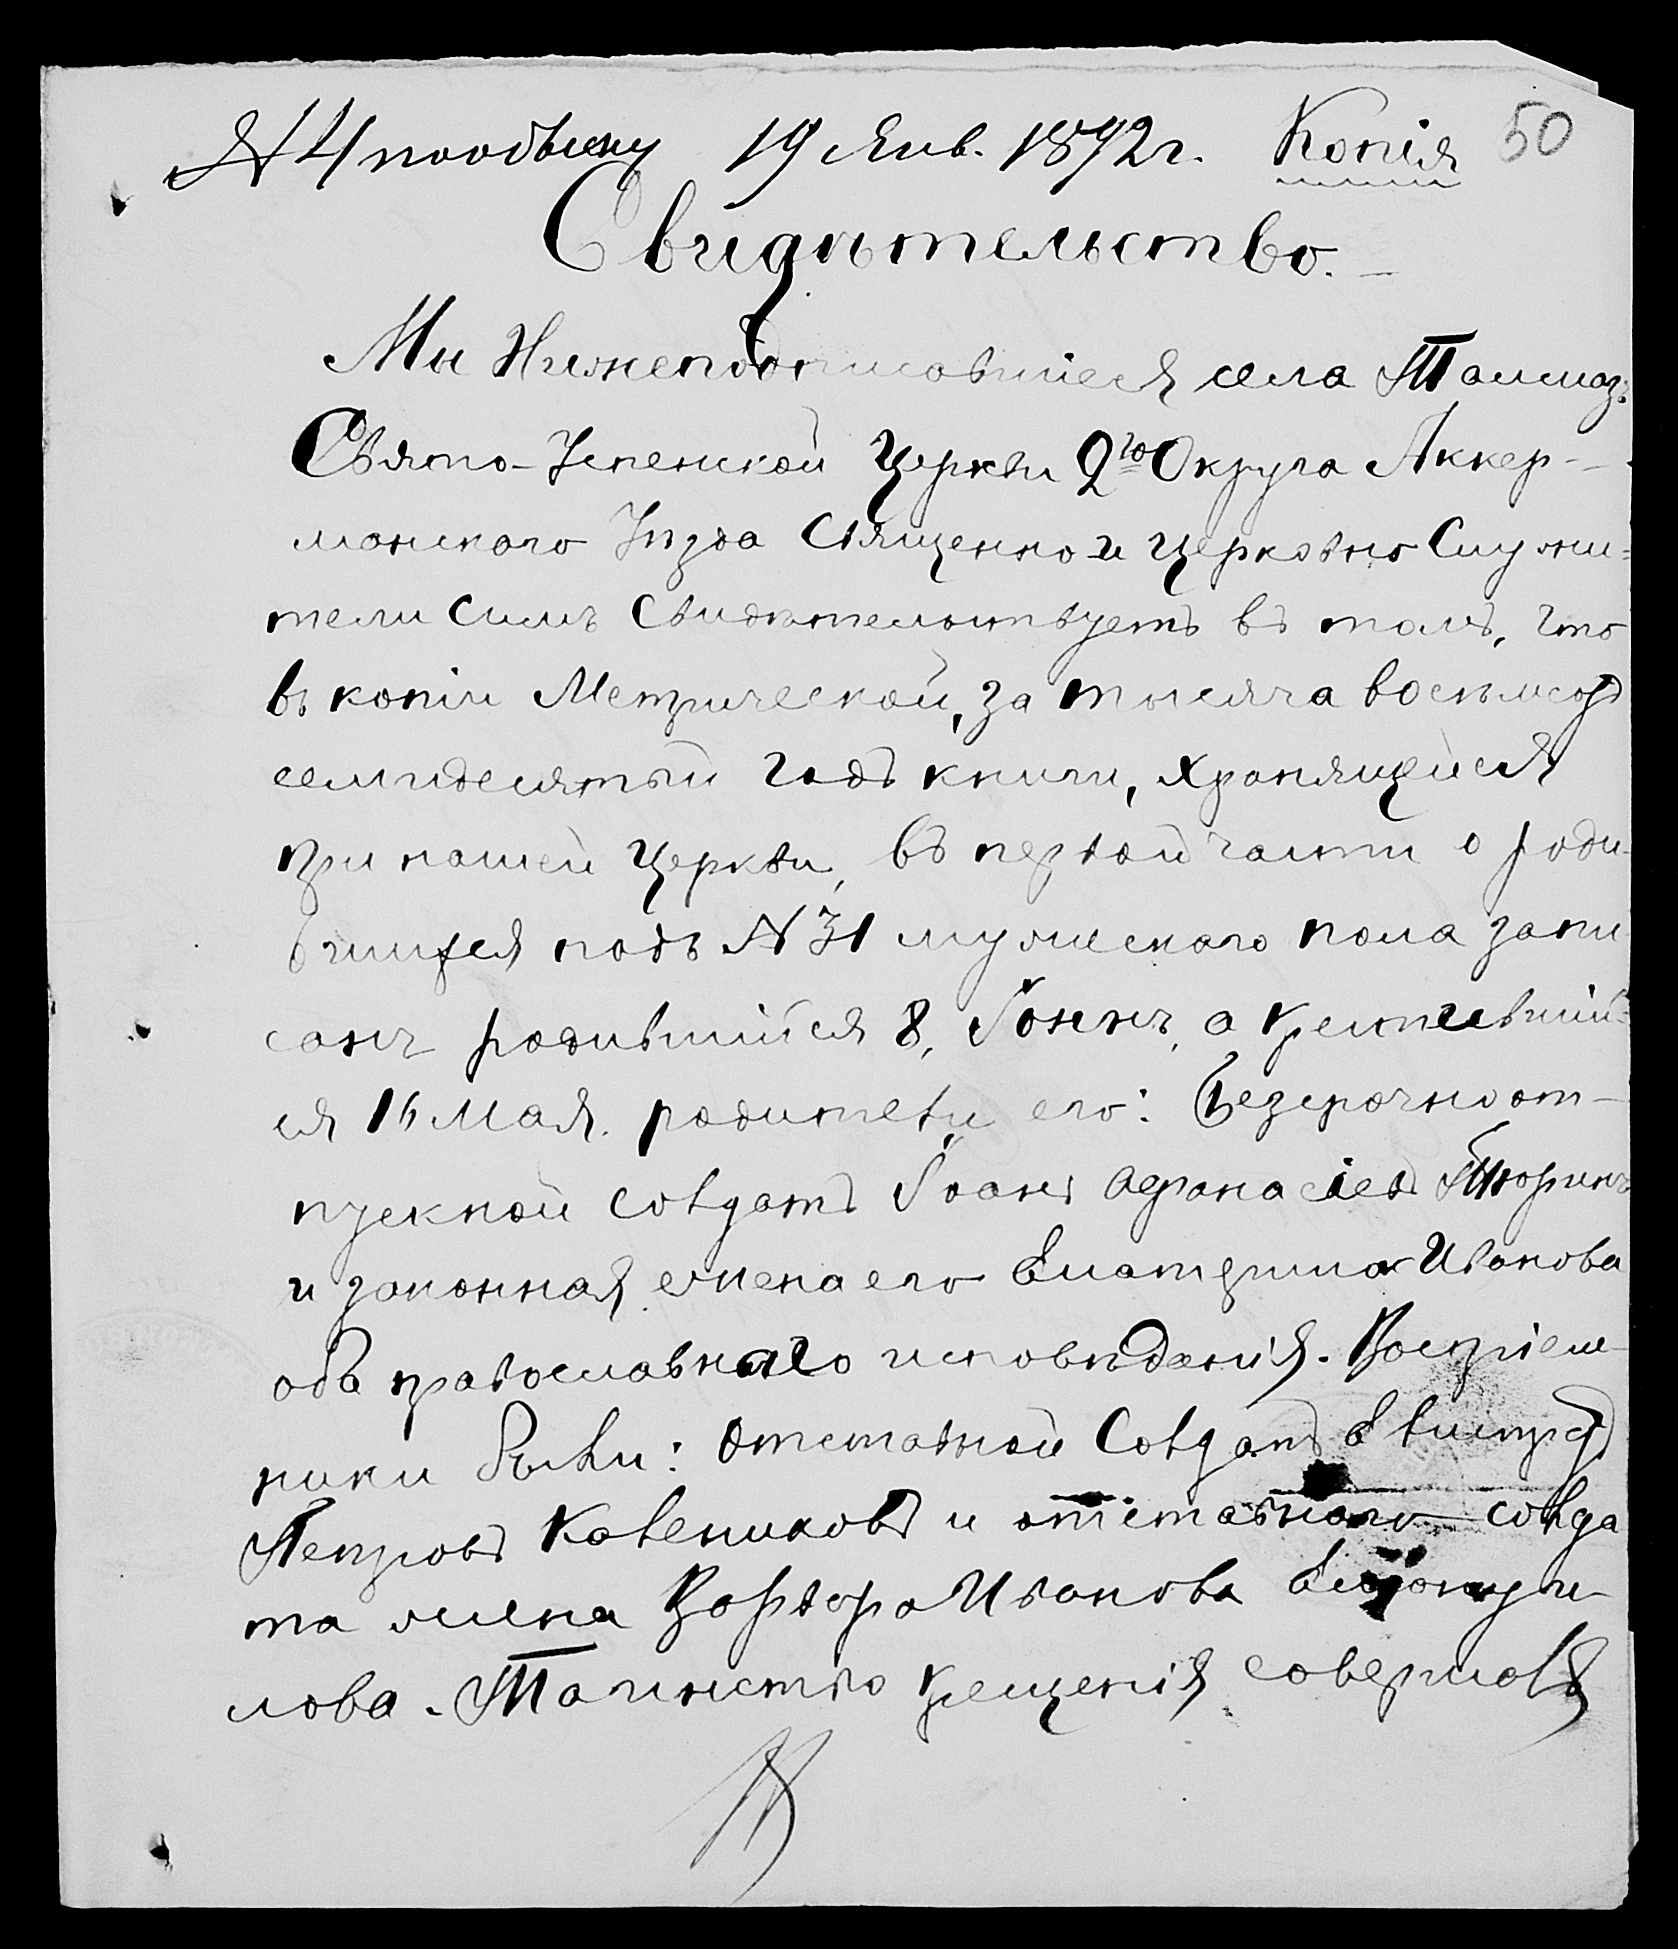 № 4 пообыску 19 Янв. 1892 г. Копія 50
Свидѣтельство. –
Мы Нижеподписавшіеся села Талмаз.
Свято-Успенской Церкви 2го Округа Аккер-
манскаго Уѣзда Священно и Церковно Служи=
тели Симъ Свидѣтельствуетъ въ томъ, что
въ копіи Метрической, за тысяча восемьсотъ
семидесятый годъ книги, хранящейся
при нашей Церкви, въ первой части о роди-
вшихся подъ № 31 мужескаго пола запи
санъ родившійся 8, Іоаннъ, а крестившій=
ся 16 Мая. родители его: Безсрочноот-
пускной солдатъ Іоанъ Афанасіевъ Тюринъ
и законная жена его Екатерина Иванова
оба православнаго исповѣданія. Воспріем-
ники были: отставной Солдатъ
Петровъ и отставнаго солда
та жена Варвара Иванова
лова. Таинство крещенія совершалъ